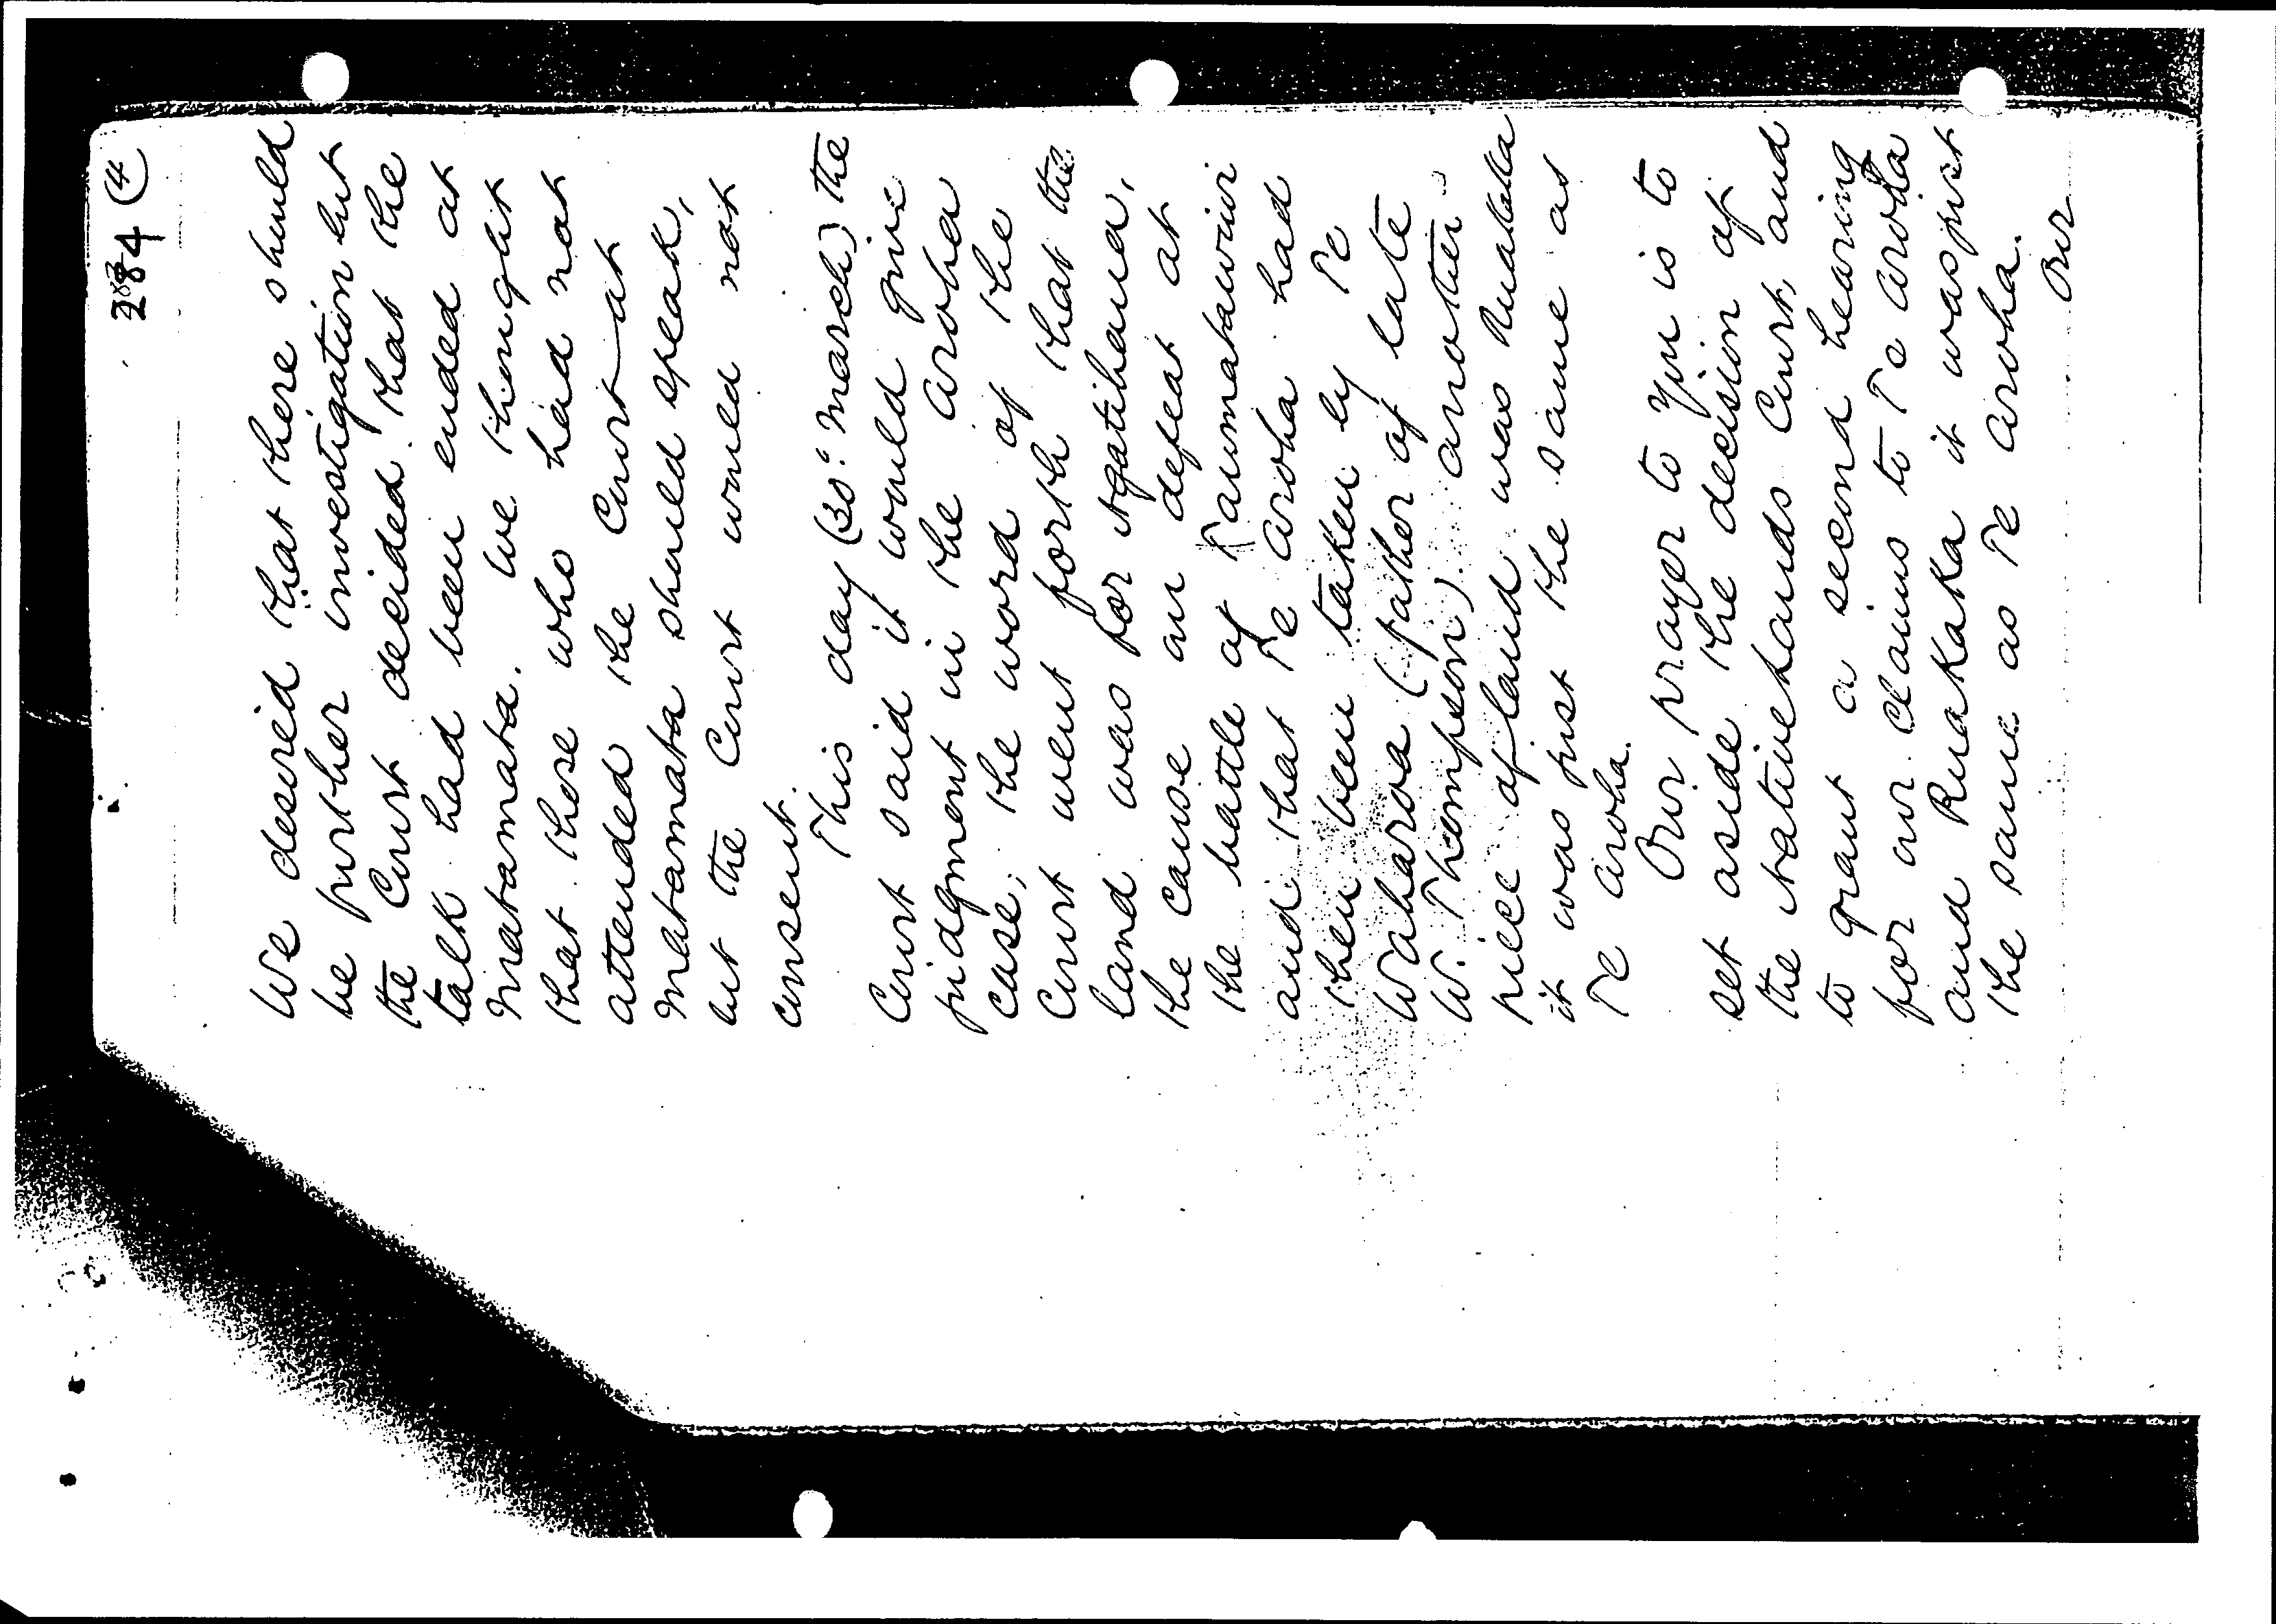 284 (4
We desired that there should
be further investigation but
the Court decided that the
talk had been ended at
Matamata. We thought
that those who had not
attended the Court at
Matamata should speak,
but the Court would not
consent.
This day (30th March) the
Court said it would give
judgment in the Aroha
case; the word of the
Court went forth that the
land was for Ngatihaua,
the cause on defeat at
the battle of Taumatawiwi
and that Te Aroha had
then been taken by Te
Waharoa (father of late
W. Thompson). Another
piece of land was Ruakaka
it was just the same as
Te Aroha.
Our prayer to you is to
set aside the decision of
the Native Lands Court, and
to grant a second hearing
for our claims to Te Aroha
and Ruakaka it was just
the same as Te Aroha.
Our